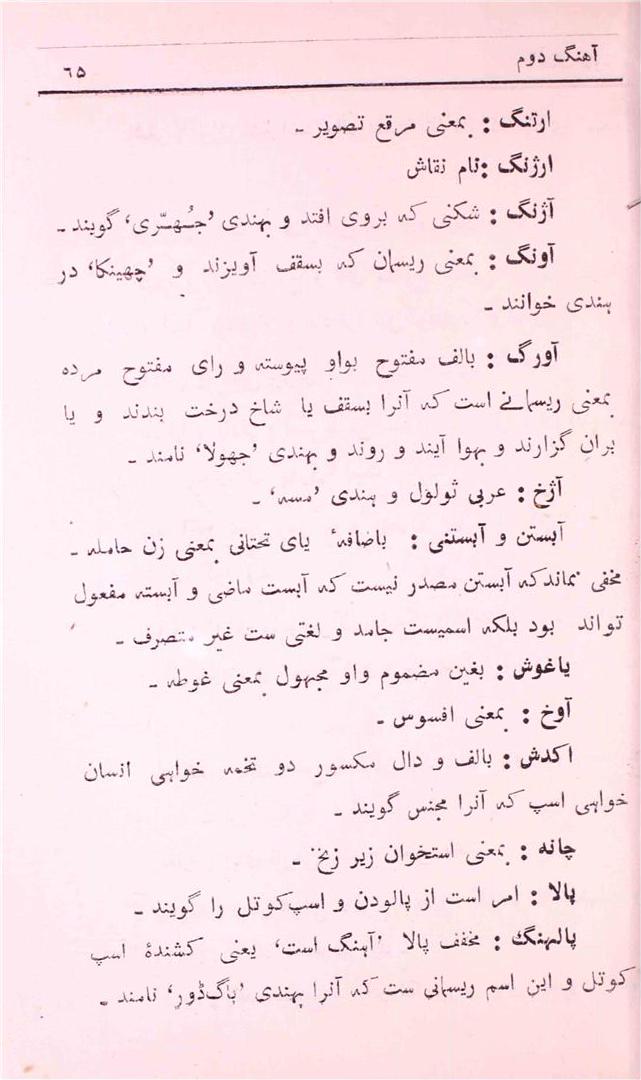 آهنگ دوم
٦٥
ارتنگ : بمعنی مرقع تصویر ـ
ارژنگ : نام نقاش
آژنگ : شکنی که بروی افتد و بهندی ’جُھرّی‘ گویند ـ
آونگ : بمعنی ریسمان که بسقف آویزند و ’چھینکا‘ در
هندی خوانند ـ
آورگ : بالف مفتوح بواو پیوسته و رای مفتوح مرده
بمعنی ریسمانے است که آنرا بسقف یا شاخ درخت بندند و پا
بران گزارند و بهوا آیند و روند و بهندی ’جھولا‘ نامند ـ
آژخ : عربی ثولول و هندی ’مسه‘ ـ
آبستن و آبستنی : باضافهٔ یای تحتانی بمعنی زن حامله ـ
مخفی نماند که آبستن مصدر نیست که آبست ماضی و آبسته مفعول
تواند بود بلکه اسمیست جامد و لغتی ست غیر متصرف ـ
یاغوش : بغین مضموم واو مجهول بمعنی غوطه ـ
آوخ : بمعنی افسوس ـ
اکدش : بالف و دال مکسور دو تخمه خواهی انسان
خواهی اسپ که آنرا مجنس گویند ـ
چانه : بمعنی استخوان زیر زنخ ـ
پالا : امر است از پالودن و اسپ کوتل را گویند ـ
پالہنگ : مخفف پالا ’آهنگ است‘ یعنی کشندهٔ اسپ
کوتل و این اسم ریسمانی ست که آنرا بهندی ’باگ ڈور‘ نامند ـ